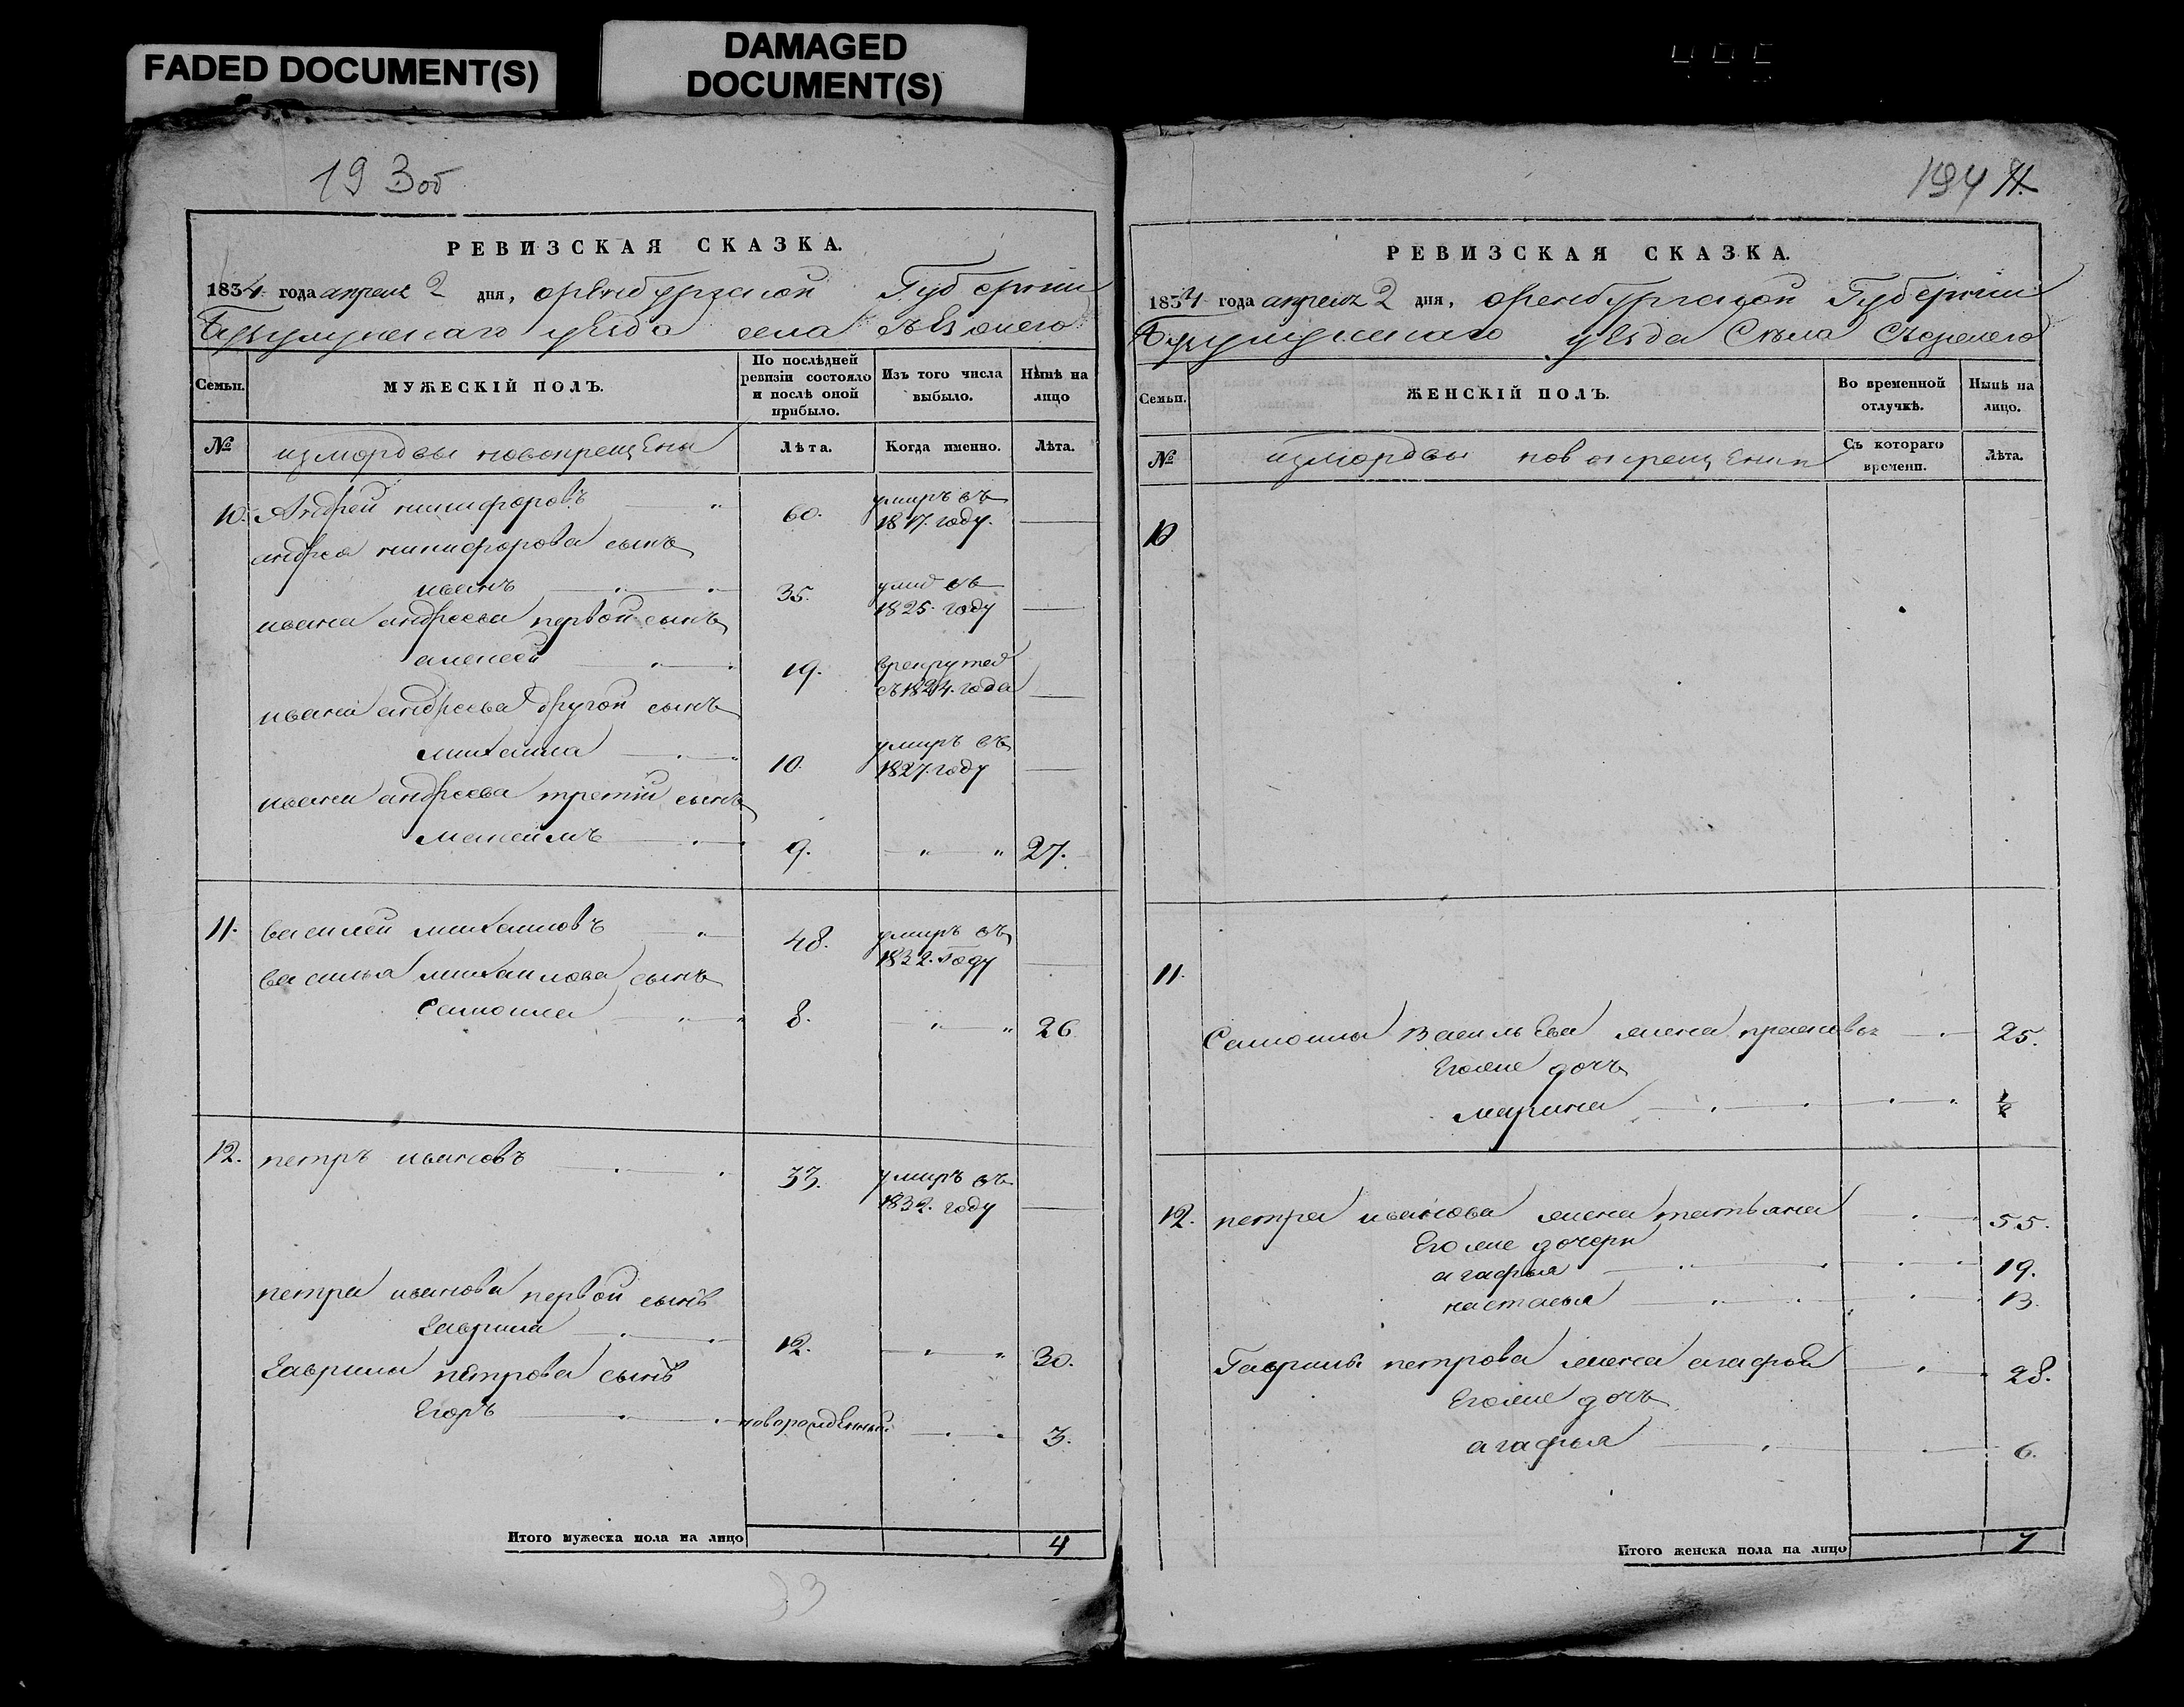 FADED DOCUMENT(S)
DAMAGED
DOCUMENT(S)
193об
РЕВИЗСКАЯ СКАЗКА.
1834 года апреля 2 дня, оренбургской Губернии
Бузулукскаго уезда села
Семьи.
МУЖЕСКІЙ ПОЛЪ.
По послѣдней ревизіи состояло и послѣ оной прибыло.
Изъ того числа выбыло.
Нынѣ на лицо
№
измордвы новокрещены
Лѣта.
Когда именно.
Лѣта.
10. Андрей никифоровъ 60. умиръ въ 1817. году.
андрея никифорова сынъ
иванъ 35. умир въ 1825. году
ивана андреева первой сынъ
алексей 19. врекруте съ 1824. года
ивана андреева другой сынъ
михаила 10. умиръ въ 1827. году
ивана андреева третий сынъ
максимъ 9. 27.
11. василей михаиловъ 48. умиръ въ 1832. году
василья михаилова сынъ
самоила 8. 26
12. петръ ивановъ 33. умиръ въ 1832. году
петра иванова первой сынъ
Гаврила 12. 30.
Гаврилы петрова сынъ
Егоръ новорожденный 3.
Итого мужеска пола на лицо 4
33
194
РЕВИЗСКАЯ СКАЗКА.
1834 года апреля 2 дня, оренбургской Губернии
Бузулукскаго уезда Села
Семьи.
ЖЕНСКІЙ ПОЛЪ.
Во временной отлучкѣ.
Нынѣ на лицо.
№
измордвы новокрещении
Съ котораго времени.
Лѣта.
10
11.
Самоилы Васильева жена прасковья 25.
Егоже дочь
марина ½
12. петра иванова жена татьяна 55.
Егоже дочери
агафья 19.
настасья 13.
Гаврилы петрова жена агафья 28.
Егоже дочь
агафья 6.
Итого женска пола на лицо 7